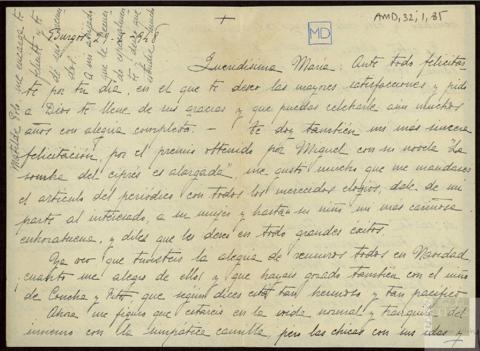 +
AMD, 32; 1, 85
MD
Burgos
Queridísima María: Ante todo felicitar-
te por tu día, en el que te deseo las mayores satisfacciones y pido
a Dios te llene de sus gracias y que puedas celebrarle aún muchos
años con alegría completa. — Te doy también mi más sincera
felicitación, por el premio obtenido por Miguel con su novela "La
sombra del ciprés es alargada", me gustó mucho que me mandaras
el artículo del periódico con todos los merecidos elogios, dale de mi
parte al interesado, a su mujer y hasta su niño mi mas cariñosa
enhorabuena, y diles que les deseo en todo grandes éxitos.
Ya veo que tuvisteis la alegría de reuniros todos en Navidad,
cuanto me alegro de ello y que hayais gozado también con el niño
de Concha y Pito, que según dices está tan hermoso y tan pacífico.
Ahora me figuro que estareis en la vida normal y tranquila del
invierno con la simpática camilla, pero las chicas con sus idas y